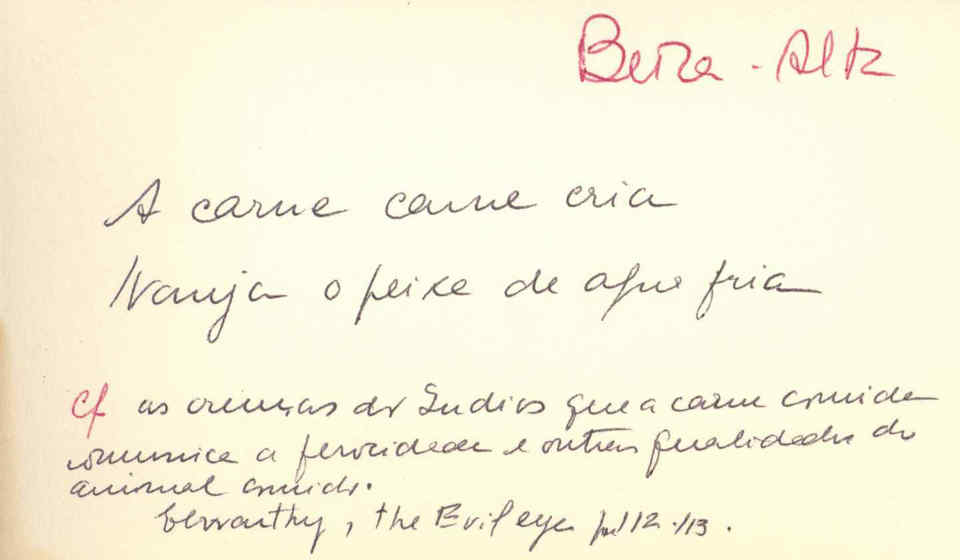 Beira - Alta
A carne carne cria
Nanja o peixe de agua fria
Cf as crenças dos Indios que a carne comida
comunica a ferocidade e outras qualidades do
animal comido.
Elworthy, the Evil eye 112-113.